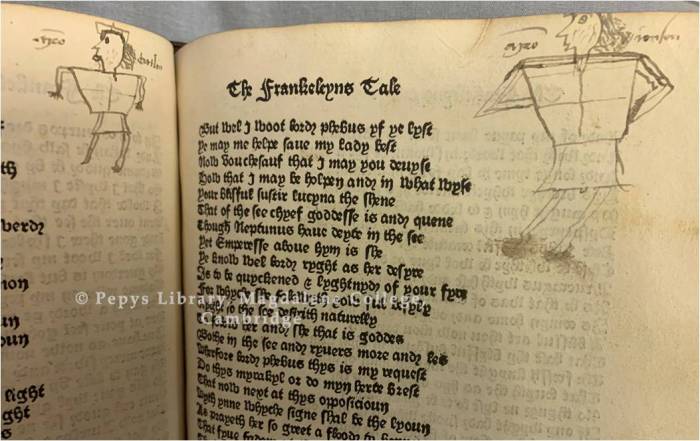 The Frankeleyns Tale
But wel I woot lord phebus yf ye lyst
Ye may me helpe saue my lady best
Now vouchesauf that I may you deuyse
How that I may be holpen and in what wyse
Your blisful sustir lucyna the shene
That of the see chyef goddesse is and quene
Though Neptunus haue deyte in the see
Yet Emperesse aboue hym is she
Ye knowe wel lord ryght as her desyre
Is to be quyckened & lyghtnyd of your fyre
For whyche she foloweth you ful
so the see desirith naturelly
her and she that is goddes
Bothe in the see and ryuers more and les
Wherfore lord phebus thys is my request
Do thys myrakyl or do myn herte brest
That now next at thys opposicioun
Wyth ynne whyche signe shal be the lyoun
As prayeth her so greet a flood to
That fyue
light
© Pepys Library, Magdalene College, Cambridge